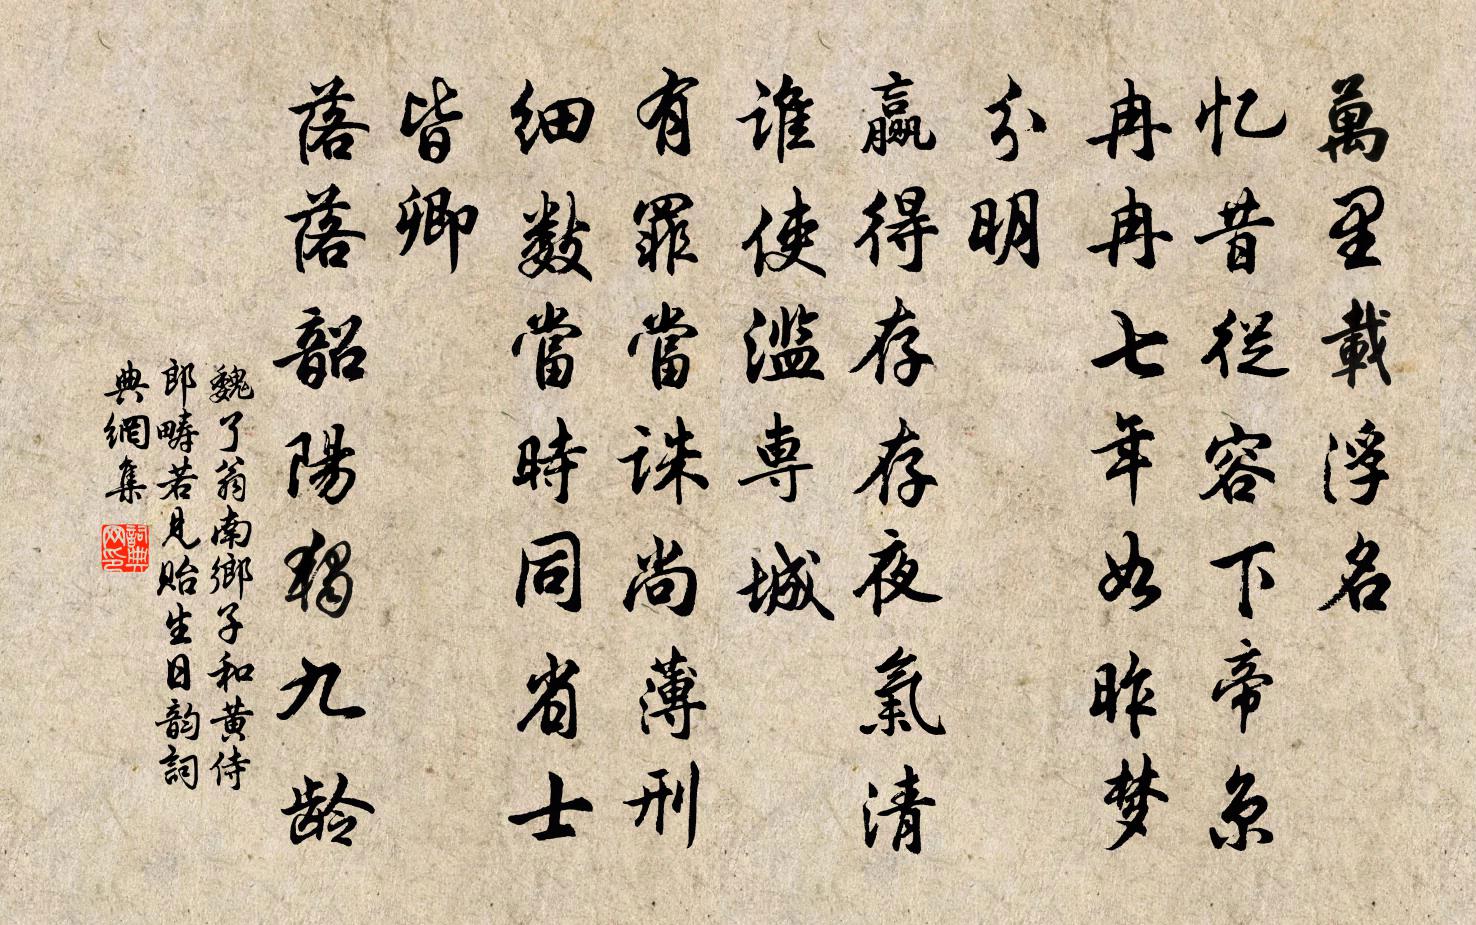 萬里載浮名
忆昔從容下帝京
冉冉七年如昨梦
分明
贏得存存夜氣清
誰使濫専城
有罪當誅尚薄刑
细數當時同省士
皆卿
落落韶陽独九龄
魏了翁南鄉子和黄侍
郎畴若見贻生日韵詞
典網集
詞典网印